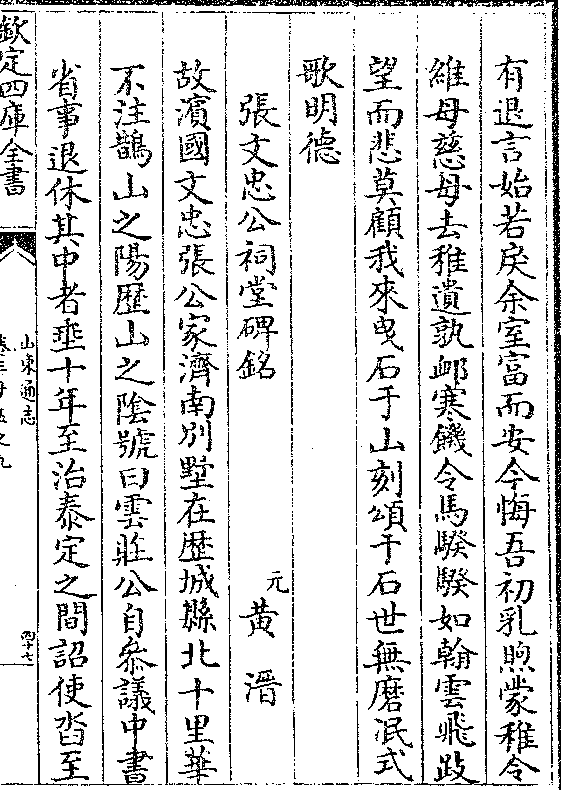 有退言始若戾余室富而安今悔吾初乳煦蒙稚令
維母慈母去稚遺孰卹寒饑令馬騤騤如翰雲飛跂
望而悲莫顧我來曵石于山刻頌于石世無磨泯式
歌明德
張文忠公祠堂碑銘 元 黃溍
故濱國文忠張公家濟南别墅在歴城縣北十里華
不注鵲山之陽歴山之陰號曰雲莊公自參議中書
省事退休其中者垂十年至治泰定之間詔使沓至
欽定四庫全書
山東通志
卷三十五之九
四十七